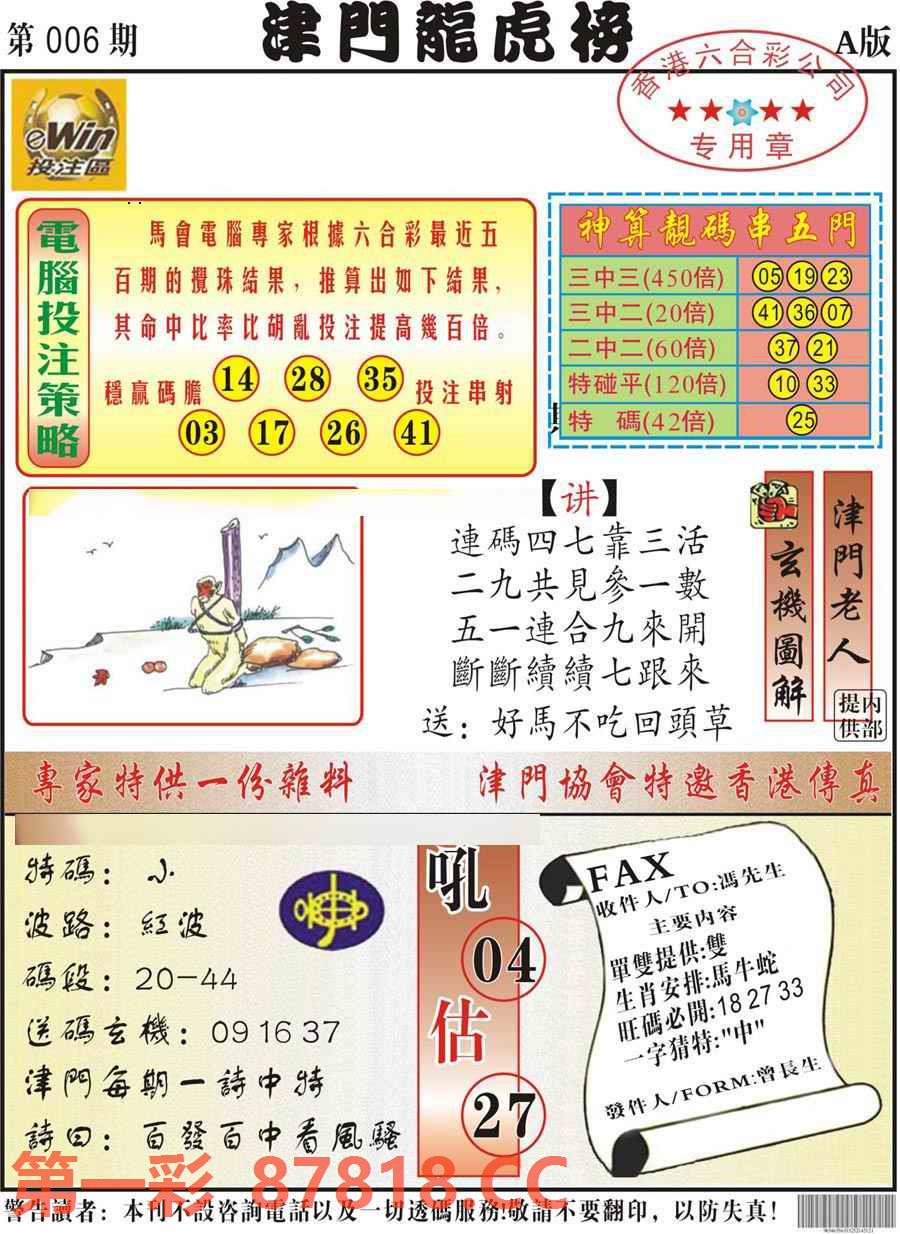 第 006 期
津門龍虎榜
A版
香港六合彩公司
专用章
eWin
投注區
電腦投注策略
馬會電腦專家根據六合彩最近五
百期的攪珠結果，推算出如下結果，
其命中比率比胡亂投注提高幾百倍。
穩贏碼膽 14 28 35 投注串射
03 17 26 41
神算靚碼串五門
三中三(450倍) 05 19 23
三中二(20倍) 41 36 07
二中二(60倍) 37 21
特碰平(120倍) 10 33
特 碼(42倍) 25
【讲】
連碼四七靠三活
二九共見參一數
五一連合九來開
斷斷續續七跟來
送：好馬不吃回頭草
玄機圖解
津門老人
内部提供
專家特供一份雜料
津門協會特邀香港傳真
特碼：小
波路：紅波
碼段：20-44
送碼玄機：09 16 37
津門每期一詩中特
詩曰：百發百中看風騷
吼
04
估
27
FAX
收件人/TO:馮先生
主要内容
單雙提供:雙
生肖安排:馬牛蛇
旺碼必開:18 27 33
一字猜特:"中"
發件人/FORM:曾長生
第一彩 87818.CC
警告讀者：本刊不設咨詢電話以及一切透碼服務!敬請不要翻印，以防失真!